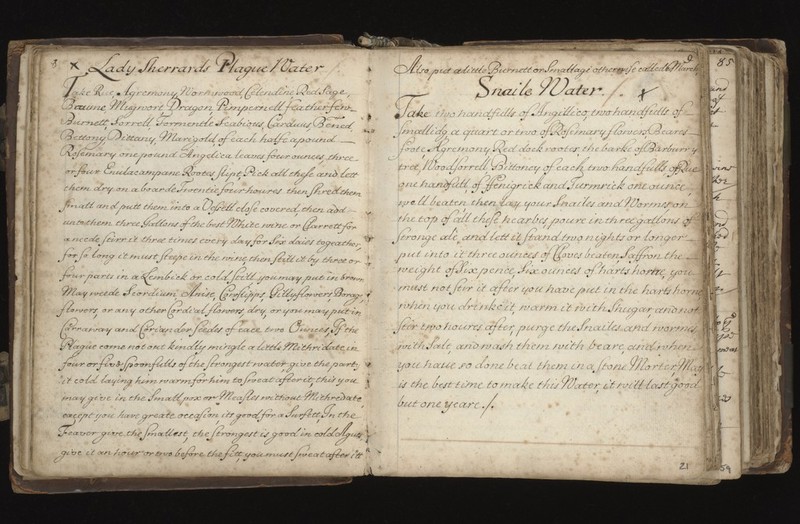 8 x Lady Sherrards Plague Water
Take Rue, Agremony, Wormwood, Celendine, Red Sage,
Baume, Mugwort, Dragon, Pimpernell, featherfew
Burnett, Sorrell, Tormentle, Scabious, Carduus, Bened:
Bettony, Dittany, Marigold, of each halfe a pound
Rosemary one pound, Angelica leaves four ounces, three
or four Enulacampane Rootes slipt, Pick all these and lett
them dry on a board Twentie four houres, then shred them
small and putt them into a Vessell close covered, then add
unto them three Gallons of the best White wine, or Clarrett for
a need, stirr it three times every day for Six daies togeather,
for so long it must steepe in the wine, then still it by three or
four parts in a Lembick or cold still, you may put in
May weede, Scordium, Anise, Cowslipps, Gillyflowers, Borage
flowers, or any other Cordial flowers dry, or you may put in
Carraway and Coriander seedes of each two Ounces, If the
Plague come not out kindly, mingle a little Mithridate, in
four or five spoonfulls of the strongest water give the party
it cold, laying him warm for him to sweat after it, this you
may give in the Small pox or Measles without Mithredate
except you have greate occasion, its good for a Surfett, In the
Feavor give the smallest, the strongest is good in cold Agues
give it an hour or two before the fitt, you must sweat after itt
9
Also, put a little Burnett or Smallage otherwise called March
Snaile Water. x
Take two handfulls of Angillico, two handfulls of
Smalledg, a quart or two of Rosimary flowers, Beares
foote, Agremony, Red dock rootes, the barke of Barburry
tree, Woodsorrell, Bittoney of each two handfulls, of Rue
one handfull, of ffenigrick and Turmrick one ounce
well beaten, then lay your Snailes and Wormes on
the top of all these hearbes, poure in three gallons of
stronge ale, and lett it stand two nights or longer
put into it three ounces of Cloves beaten, Saffron the
weight of Six pence, Six ounces of harts horne, you
must not stir it after you have put in the harts horne
when you drinke it, warm it with Shugar, and not
stir two hours after, purge the Snailes and wormes
with Salt, and wash them with beare, and when
you have so done beat them in a stone Morter, May
is the best time to make this Water, it will last good
but one yeare.
21
85
59